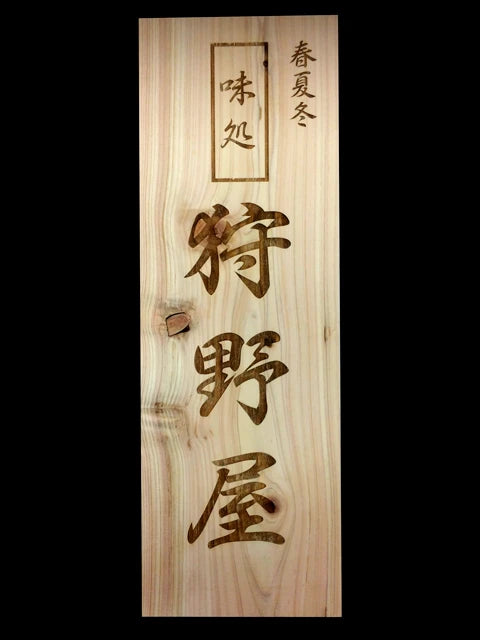 春夏冬
味処
狩野屋